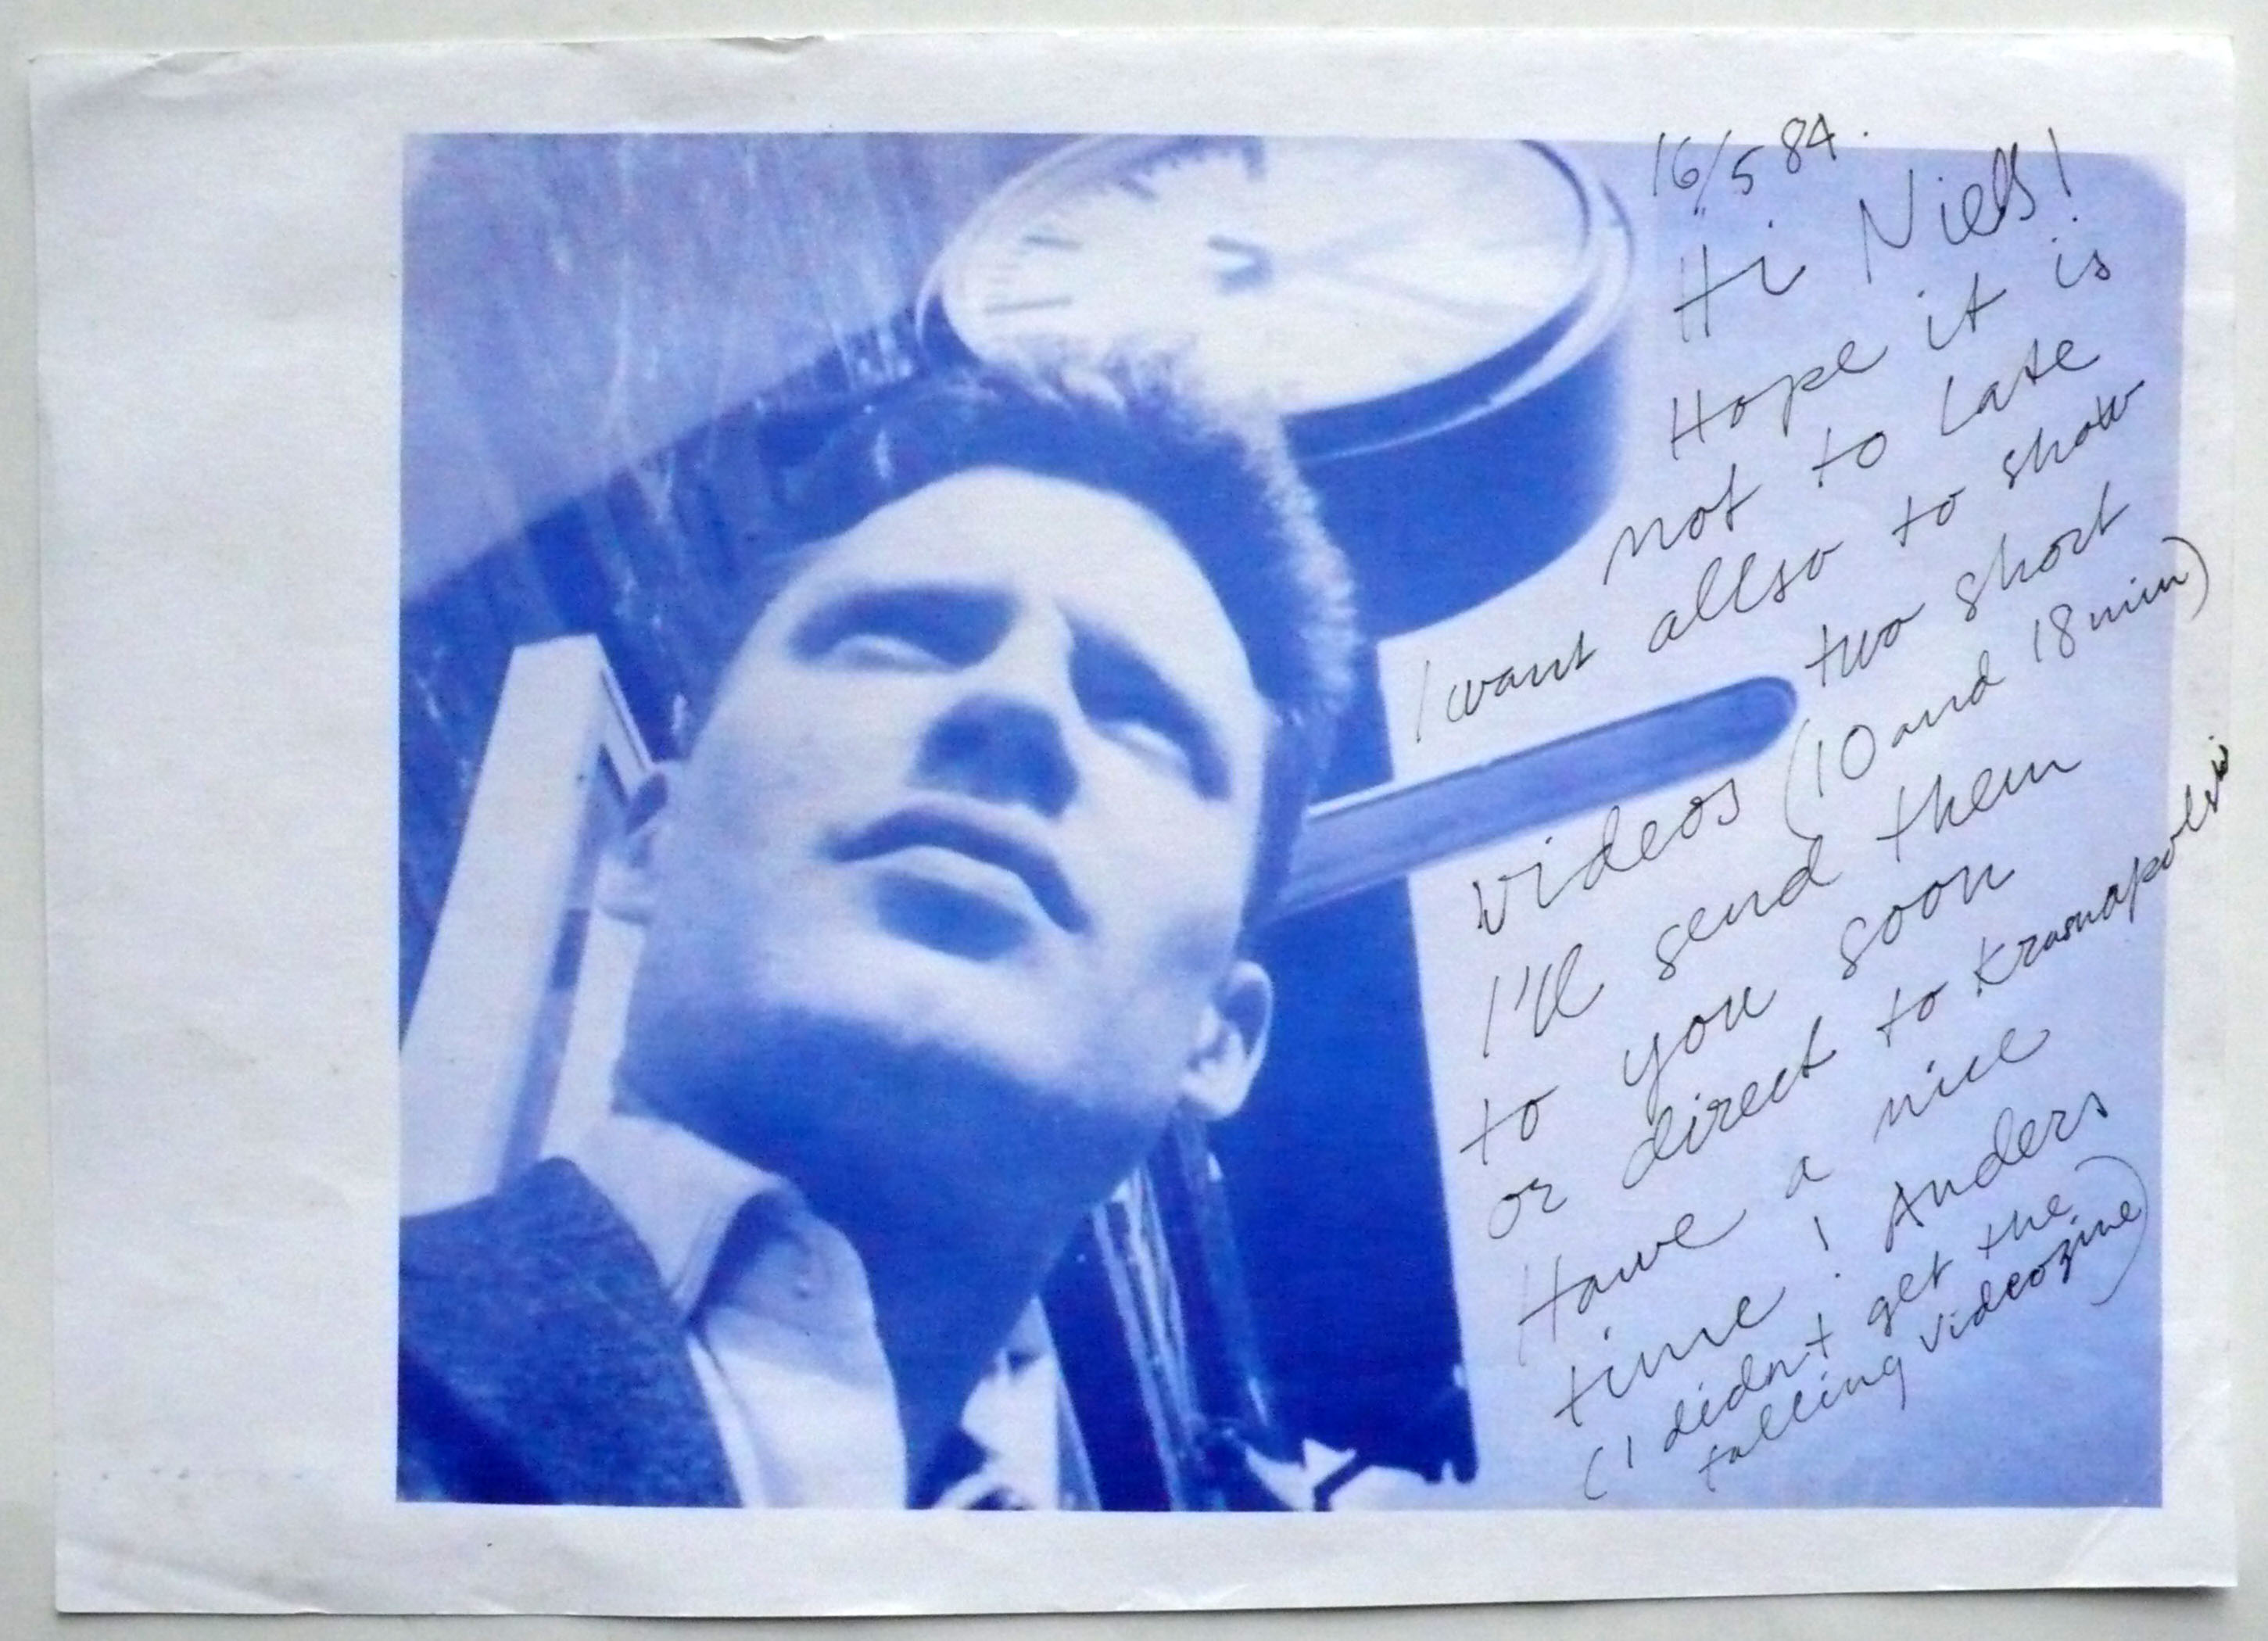 16/5 84.
Hi Niels!
Hope it is
not to late
I want allso to show
two short
videos (10 and 18 min)
I'll send them
to you soon
or direct to Krasnapolski
Have a nice
time! Anders
(I didn't get the
talling videozine)